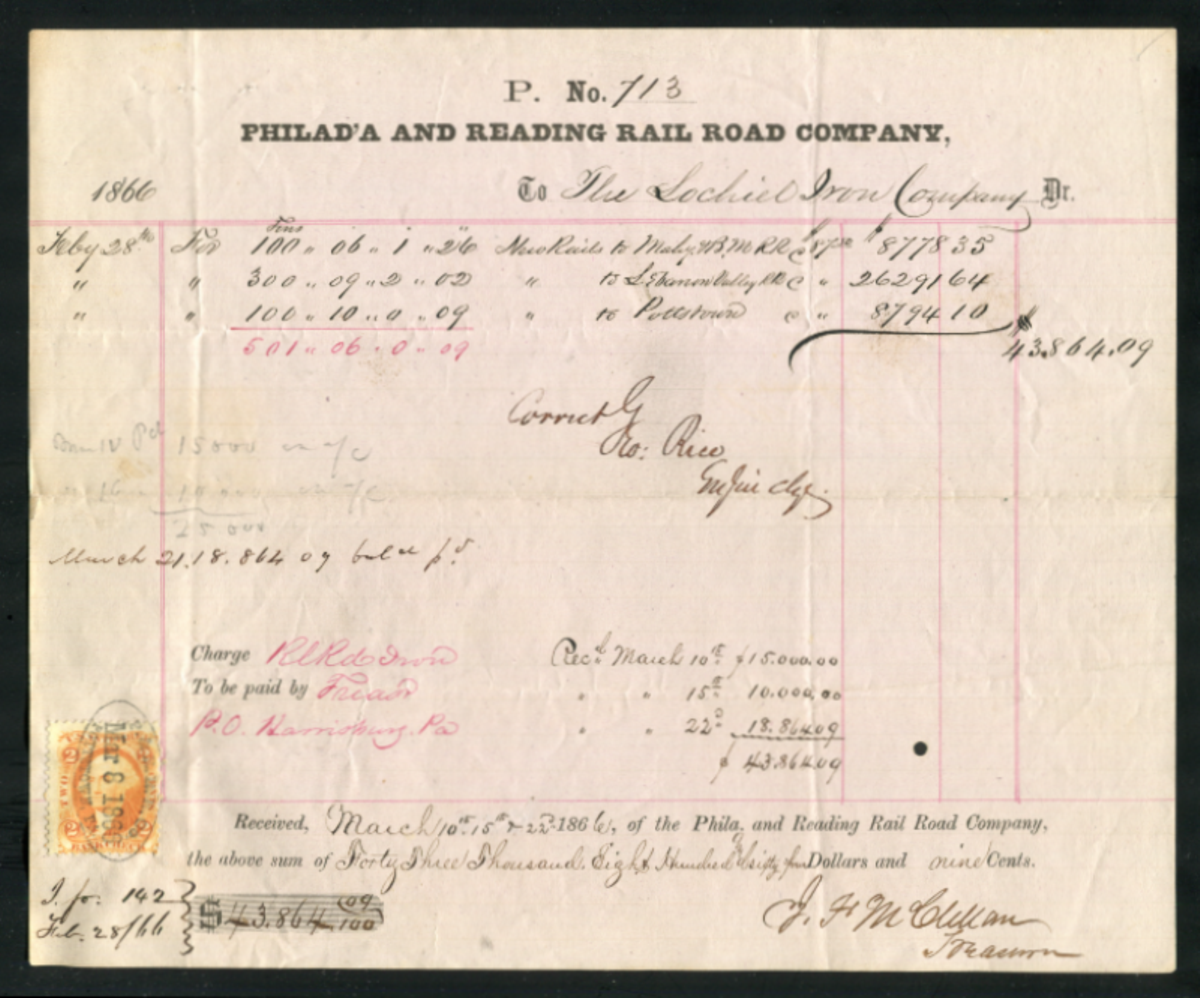 P. No. 713
PHILAD'A AND READING RAIL ROAD COMPANY,
1866 To The Lochiel Iron Company Dr.
Tons
Feby 28th For 100 " 06 " 1 " 26 New Rails to Mahy. & B. M. R R @ $ 87 50 $ 8778 35
" " 300 " 09 " 2 " 02 " to Lebanon Valley R R @ " 26291 64
" " 100 " 10 " 0 " 09 " to Pottstown @ " 8794 10
501 " 06 " 0 " 09 $ 43.864.09
Correct G
Ro: Rice
15000
10 000
25 000
March 21. 18.864 09 bal pd
Charge R R Iron Recd March 10th $15.000.00
To be paid by " " 15th 10.000.00
P.O. Harrisburg. Pa " " 22d 18.864.09
$ 43.864.09
TWO
2 2
BANK CHECK
Mar 8 186
Received, March 10th 15th & 22d 1866, of the Phila. and Reading Rail Road Company,
the above sum of Forty Three Thousand Eight Hundred & sixty four Dollars and nine Cents.
J. fo: 142
Feb. 28/66
$ 43.864 09/100
J. F. McClellan
Treasurer